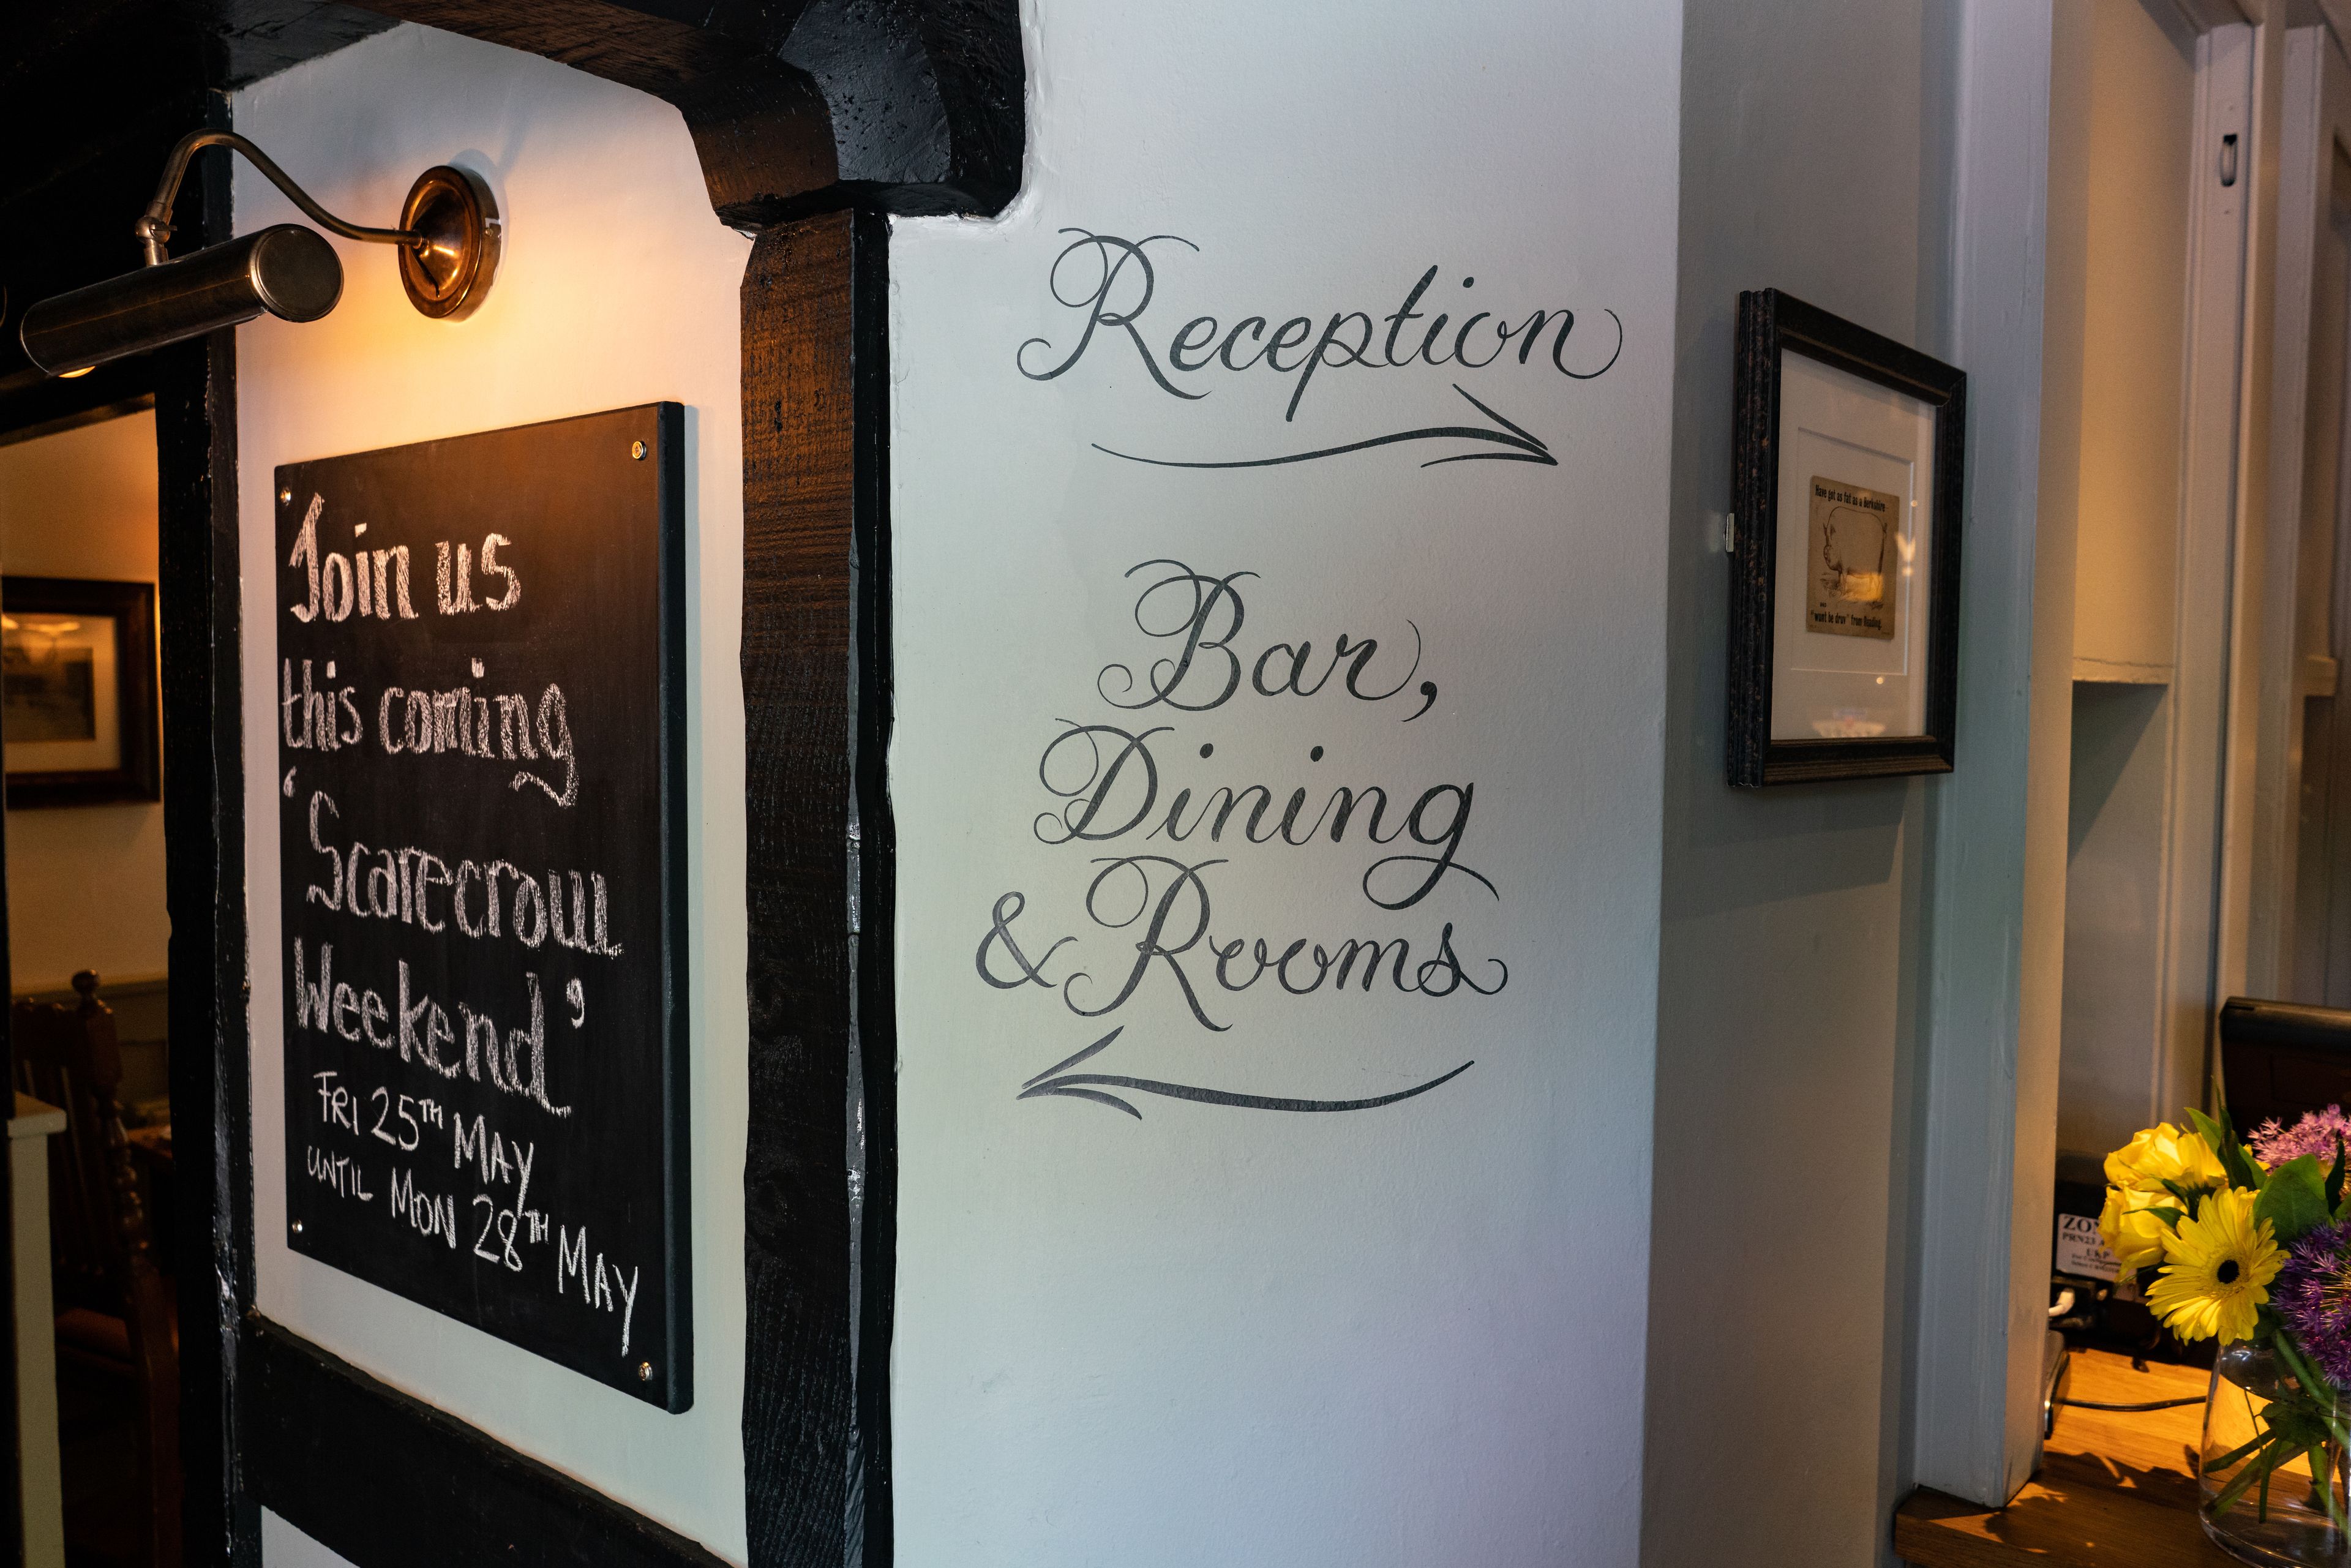 Join us
this coming
‘Scarecrow
Weekend’
FRI 25TH MAY
UNTIL MON 28TH MAY
Reception
Bar,
Dining
& Rooms
Have got as fat as a Berkshire
"wont be druv" from Reading.
PRN23